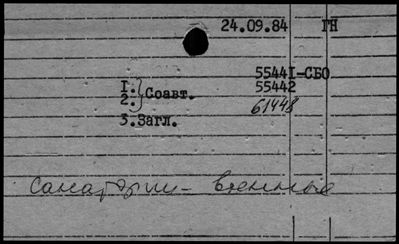 24.09.84 ГН
55441-СБО
1. } Соавт. 55442
2. 61448
3. Загл.
Санатории - военные